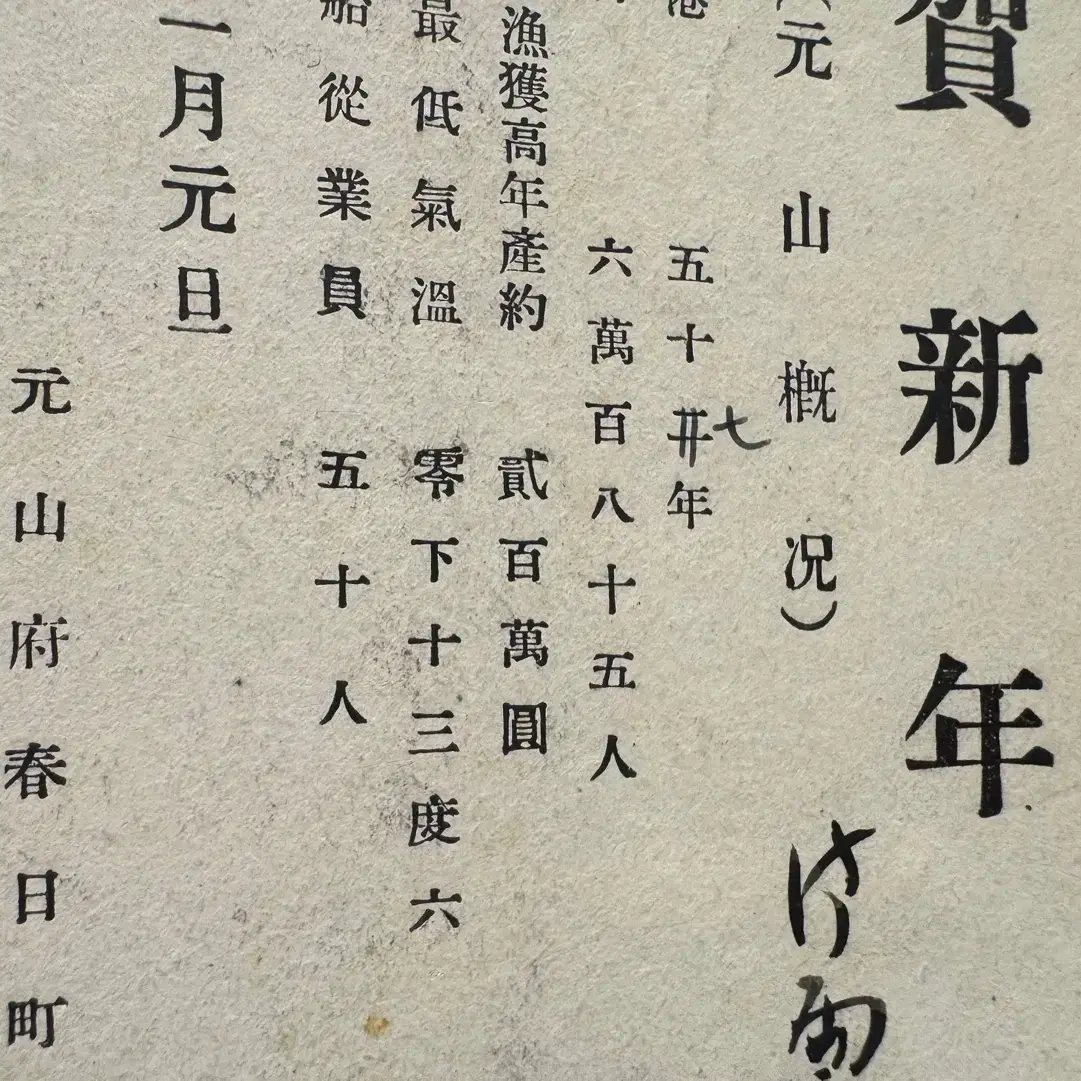 賀新年
(元山槪況)
港 五十七年
六萬百八十五人
漁獲高年產約 貳百萬圓
最低氣溫 零下十三度六
船從業員 五十人
一月元旦
元山府春日町